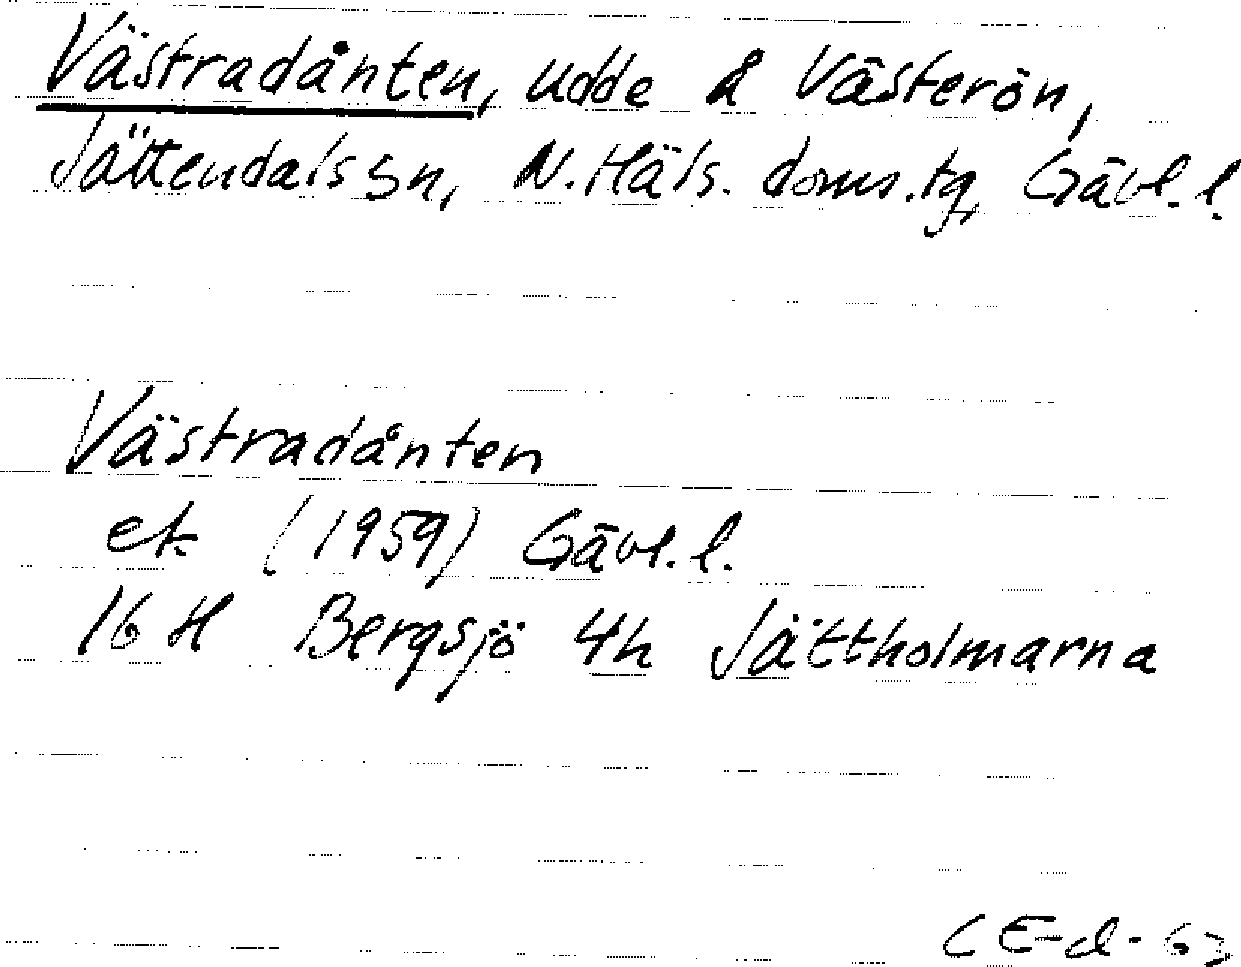 Västradånten, udde å Västerön,
Jättendals sn, N. Häls. doms. tg, Gävl. l.
Västradånten
ek (1959) Gävl. l.
16 H Bergsjö 4h Jättholmarna
CE-d- 63